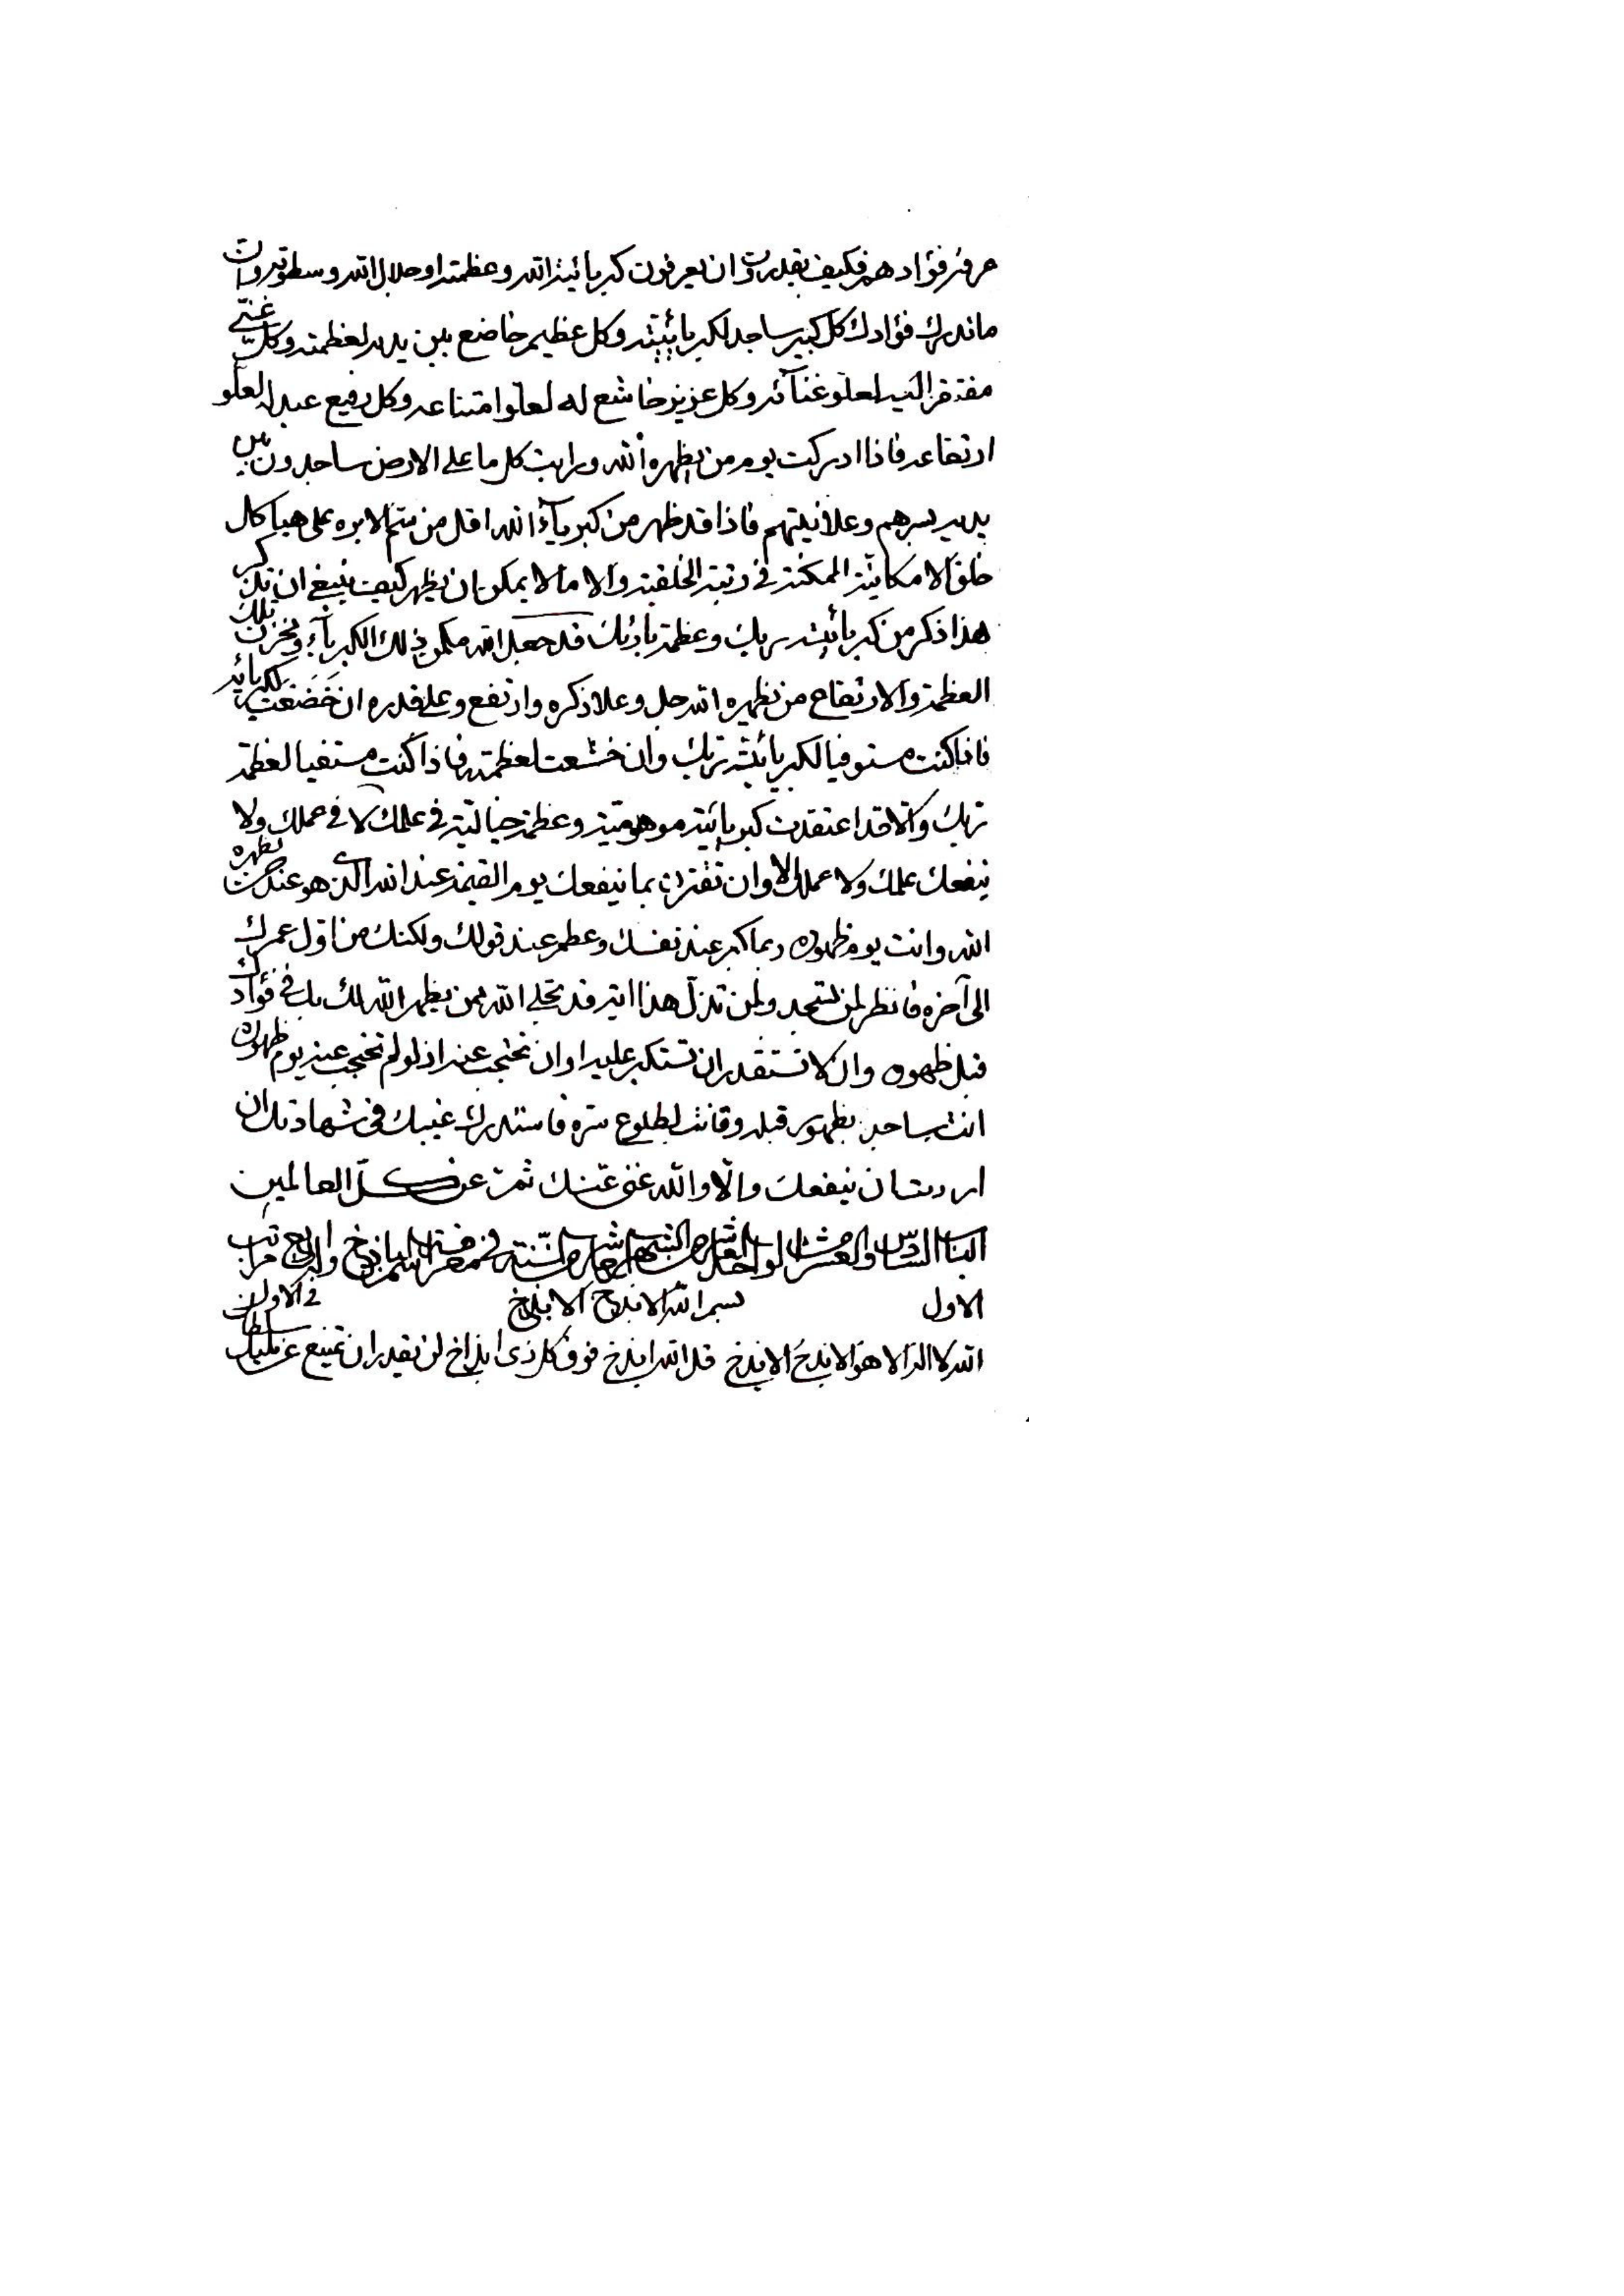 عرفته فؤادهم فكيف يقدرون ان يعرفون كبريائية الله وعظمته او جلال الله وسطوته وان
ما تدرك فؤادك كل كبير ساجد لكبريائيته وكل عظيم خاضع بين يديه لعظمته وكل غنى
مفتقر اليه لعلو غنآئه وكل عزيز خاشع له لعلو امتناعه وكل رفيع عبد له لعلو
ارتفاعه فاذا ادركت يوم من يظهره الله ورايت كل ما على الارض ساجدون بين
يديه بسرهم وعلانيتهم فاذا قد ظهر من كبريآء الله اقل من سم الابره على هياكل
خلق الامكانية الممكنة فى رتبة الخلقية والا ما لا يمكن ان يظهر كيف ينبغى ان يذكر
هذا ذكر من كبريائية ربك وعظمة بارئك قد جعل الله مكمن ذلك الكبريآء ومخزن تلك
العظمة والارتفاع من يظهره الله جل وعلا ذكره وارتفع وعلى قدره ان خضعت لكبريائه
فاذا كنت مستوفيا لكبريائية ربك وان خشعت لعظمته فاذا كنت مستفيا لعظمة
ربك والا قد اعتقدت كبريائية موهومية وعظمة خيالية فى علمك لا فى عملك ولا
ينفعك علمك ولا عملك الا وان تقترن بما ينفعك يوم القيمة عند الله الذى هو عند من يظهره
الله وانت يوم ظهوره ربما اكبر عند نفسك وعظم عند قولك ولكنك من اول عمرك
الى آخره فانظر لمن تسجد ولمن تذل هذا اية قد تجلى الله ممن يظهر الله لك بك فى فؤادك
قبل ظهوره وان لا تستقدر ان تستكبر عليه او ان تحتجب عنه اذ لو لم تحتجب عنه يوم ظهوره
انت ساجد بظهور قبله وقانت لطلوع سره فاستدرك غيبك فى شهادتك ان
اردت ان ينفعك والا والله غنى عنك ثمت عن كل العالمين
الباب السادس والعشر من الواحد العاشر من الشهر العاشر من السنة فى معرفة اسم الباذخ وله اربع مراتب
الاول بسم الله الابذخ الابذخ فى الاول
الله لا اله الا هو الابذخ الابذخ قل الله ابذخ فوق كل ذى ابذاخ لن يقدر ان يمتنع عن مليك سلطان